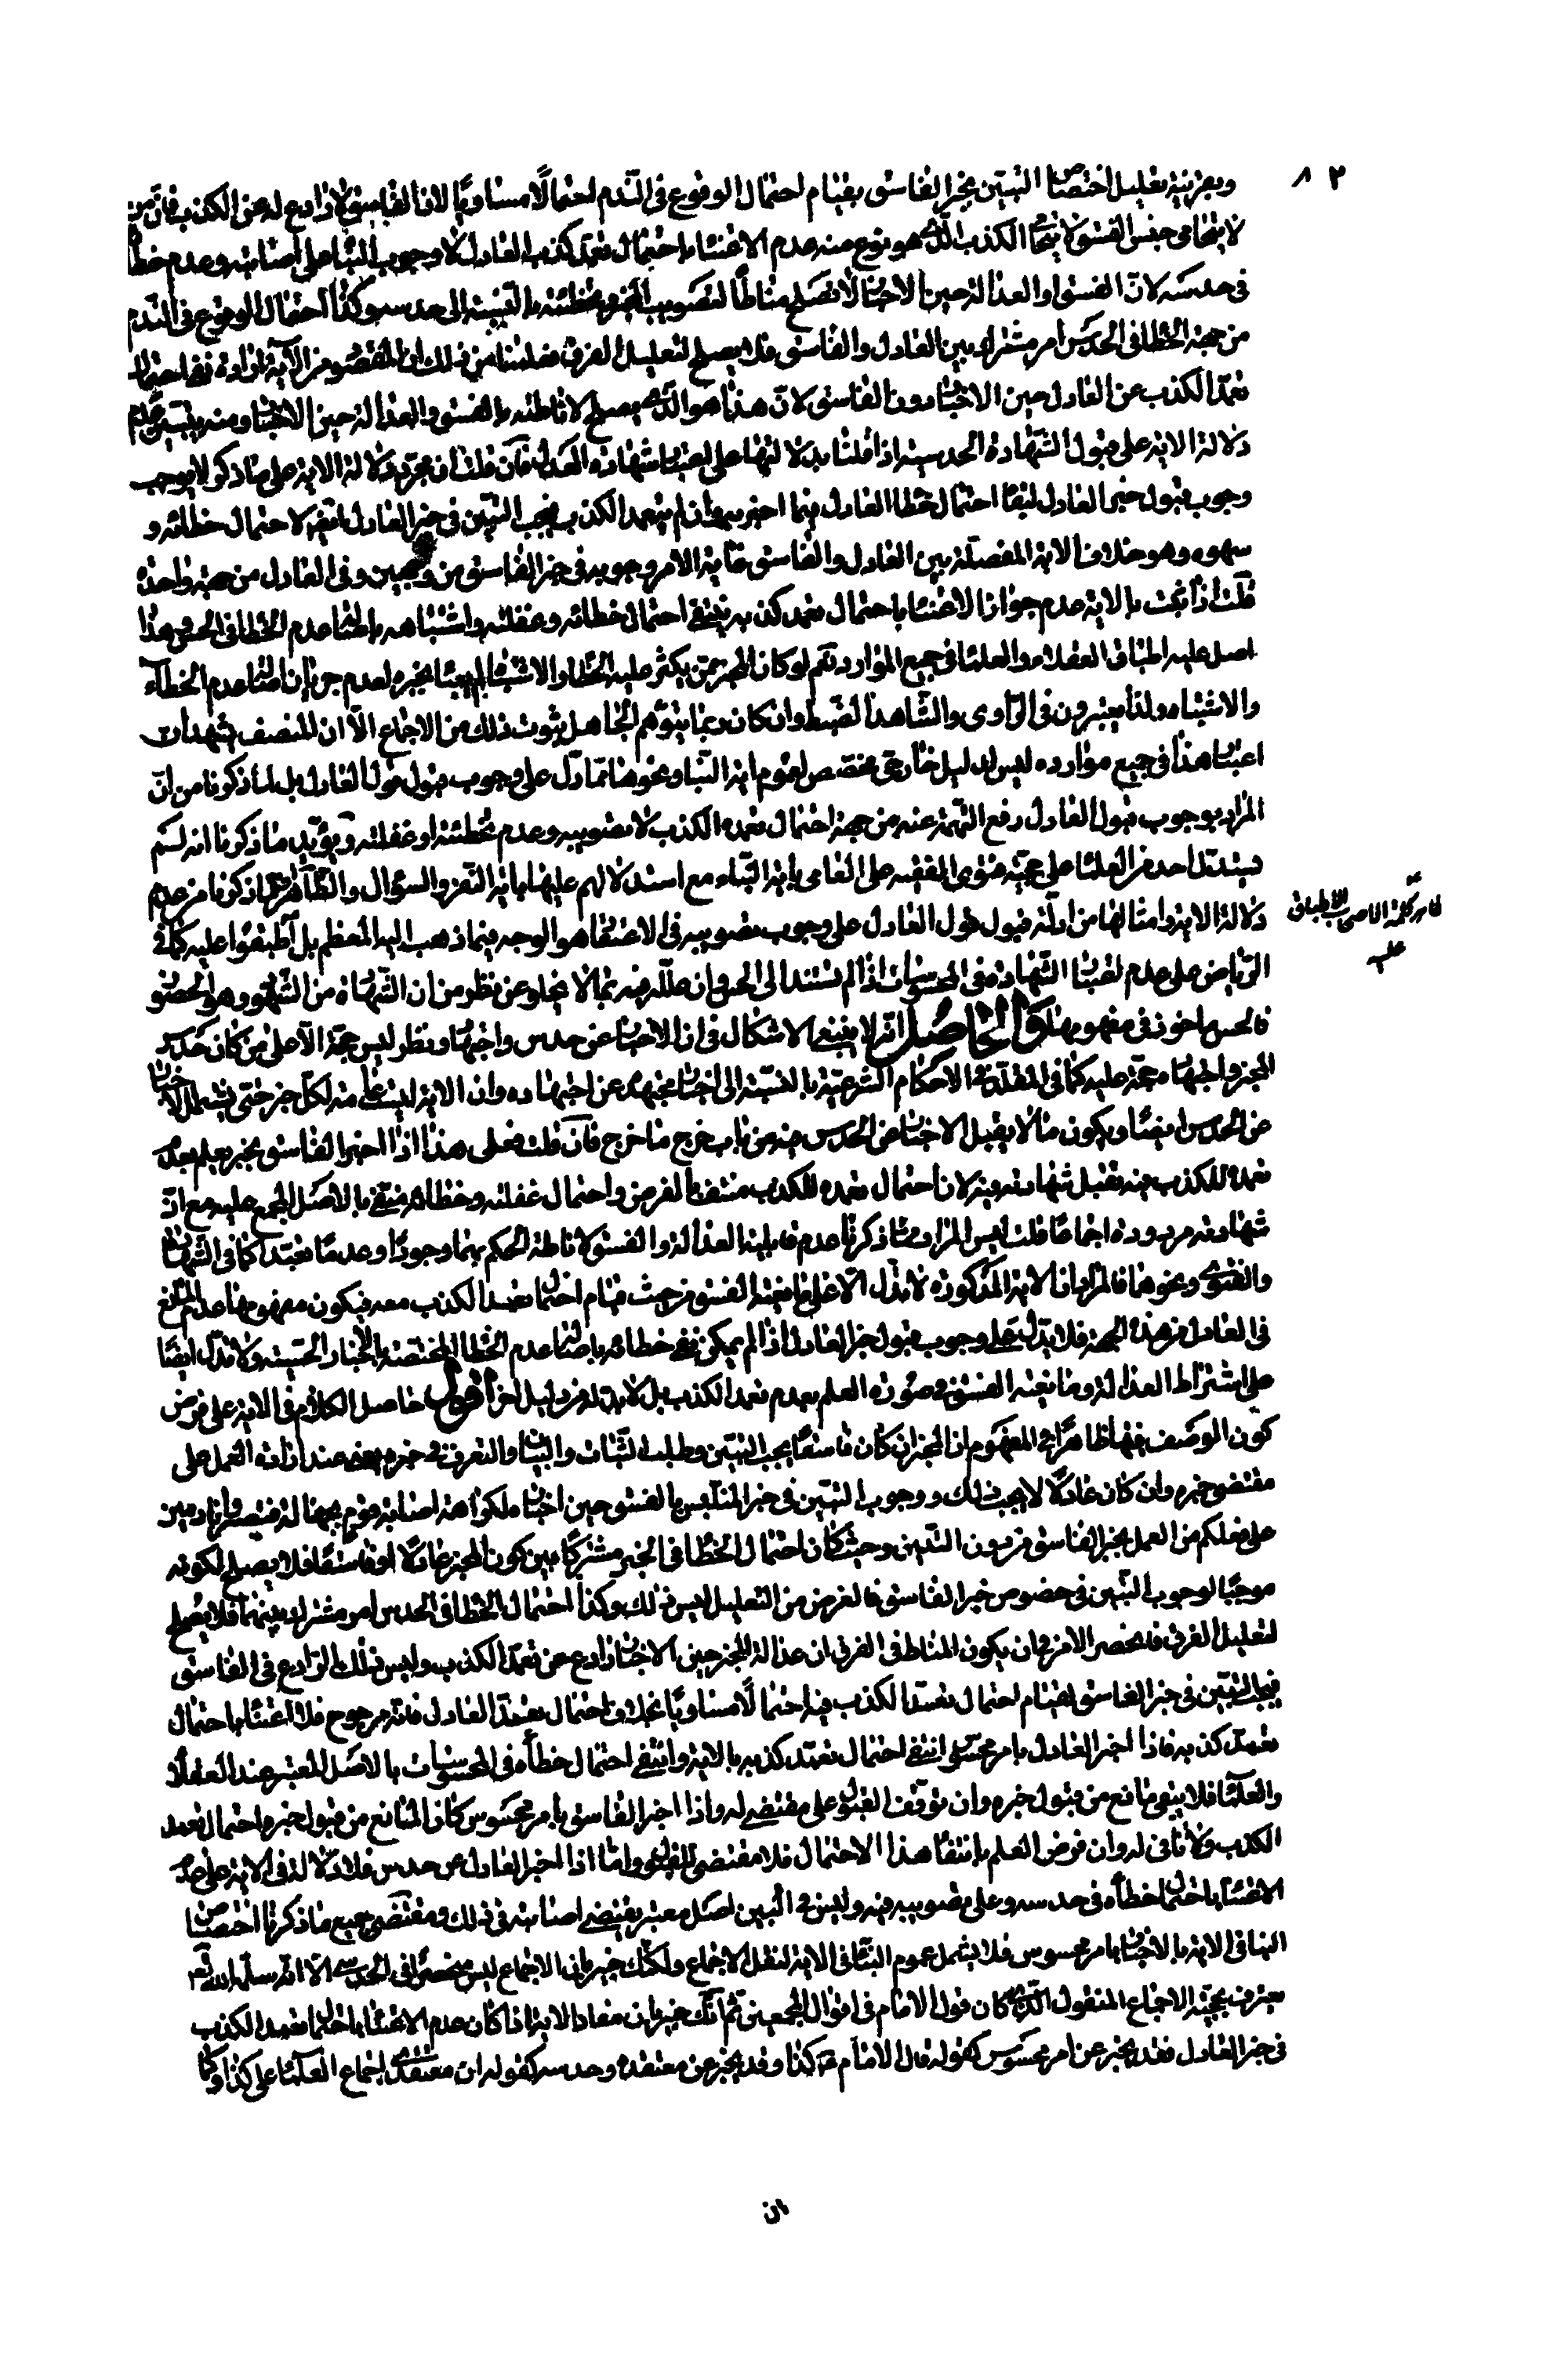 ٨٢
وبقرينة تعليل اختصاص التبين بخبر الفاسق بقيام احتمال الوقوع في الندم احتمالا مساويا لان الفاسق لا رادع له عن الكذب فان من
لا يتحامى جنس الفسق لا يتحامى الكذب الذي هو نوع منه عدم الاعتناء باحتمال تعمد كذب العادل لا وجوب البناء على اصابته وعدم خطأه
في حدسه لان الفسق او العدالة حين الاخبار لا تصلح مناطا لتصويب المخبر وتخطئته بالنسبة الى حدسه وكذا احتمال الوقوع في الندم
من جهة الخطا في الحدس امر مشترك بين العادل والفاسق فلا يصلح لتعليل الفرق فعلمنا من ذلك ان المقصود من الآية ارادة نفي احتمال
تعمد الكذب عن العادل حين الاخبار دون الفاسق لان هذا هو الذي يصلح لاناطته بالفسق والعدالة حين الاخبار ومنه يتبين عدم
دلالة الاية على قبول الشهادة الحدسية اذا قلنا بدلالتها على اعتبار شهادة العدل فان قلت ان مجرد دلالة الاية على ما ذكر لا يوجب
وجوب قبول خبر العادل لبقاء احتمال خطا العادل فيما اخبر به وان لم يتعمد الكذب فيجب التبين في خبر العادل ايضا لاحتمال خطائه و
سهوه وهو خلاف الاية المفصلة بين العادل والفاسق غاية الامر وجوبه في خبر الفاسق من وجهين وفي العادل من جهة واحدة
قلت اذا ثبت بالاية عدم جواز الاعتناء باحتمال تعمد كذبه ينتفي احتمال خطائه وغفلته واشتباهه باصالة عدم الخطا في الحس وهذا
اصل عليه اطباق العقلاء والعلماء في جميع الموارد نعم لو كان المخبر ممن يكثر عليه الخطا والاشتباه لم يعبأ بخبره لعدم جريان اصالة عدم الخطاء
والاشتباه ولذا يعتبرون في الراوي والشاهد الضبط وان كان ربما يتوهم الجاهل ثبوت ذلك من الاجماع الا ان المنصف يشهد ان
اعتبار هذا في جميع موارده ليس لدليل خارجي مخصص لعموم اية النبا ونحوها مما دل على وجوب قبول قول العادل بل لما ذكرنا من ان
المراد بوجوب قبول العادل رفع التهمة عنه من جهة احتمال تعمده الكذب لا تصويبه وعدم تخطئته او غفلته ويؤيد ما ذكرنا انه لم
يستدل احد من العلماء على حجية فتوى الفقيه على العامي باية النباء مع استدلالهم عليها باية النفر والسؤال والظاهر ان ما ذكرنا من عدم
دلالة الاية وامثالها من ادلة قبول قول العادل على وجوب تصويبه في الاعتقاد هو الوجه فيما ذهب اليه المعظم بل اطبقوا عليه كما في
الرياض على عدم اعتبار الشهادة في المحسوسات اذا لم تستند الى الحس وان علله فيه بما لا يخلو عن نظر من ان الشهادة من الشهود وهو الحضور
فالحس ماخوذ في مفهومها والحاصل انه لا ينبغي الاشكال في ان الاخبار عن حدس واجتهاد ونظر ليس حجة الا على من كان حدس
المخبر واجتهاده حجة عليه كما في المقلد في الاحكام الشرعية بالنسبة الى اخبار مجتهده عن اجتهاده وان الاية ليست عامة لكل خبر حتى يشمل الاخبار
عن الحدس ايضا ويكون ما لا يقبل الاخبار عن الحدس فيه من باب خرج ما خرج فان قلت فعلى هذا اذا اخبر الفاسق بخبر يعلم بعدم
تعمده للكذب فيه تقبل شهادته فيه لان احتمال تعمده للكذب منتف بالفرض واحتمال غفلته وخطائه منتفي بالاصل المجمع عليه مع ان
شهادته مردودة اجماعا قلت ليس المراد مما ذكرنا عدم قابلية العدالة والفسق لاناطة الحكم بهما وجودا وعدما تعبدا كما في الشهادة
والفتوى ونحوهما فالمراد ان الاية المذكورة لا تدل الا على مانعية الفسق من حيث قيام احتمال تعمد الكذب معه فيكون مفهومها عدم المانع
في العادل من هذه الجهة فلا يدل على وجوب قبول خبر العادل اذا لم يمكن نفي خطائه باصالة عدم الخطا المختصة بالاخبار الحسية ولا تدل ايضا
على اشتراط العدالة ومانعية الفسق في صورة العلم بعدم تعمد الكذب بل لا بد له من دليل اخر اقول حاصل الكلام في الاية على فرض
كون الوصف فيها ظاهرا في المفهوم ان المخبر ان كان فاسقا يجب التبين وطلب الثبات والبيان والتعرف في خبره عند ارادة العمل على
مقتضى خبره وان كان عادلا لا يجب ذلك ووجوب التبين في خبر المتلبس بالفسق حين اخباره لكراهة اصابة قوم بجهالة فتصبحوا نادمين
على فعلكم من العمل بخبر الفاسق من دون التبين وحيث كان احتمال الخطا في الخبر مشتركا بين كون المخبر عادلا او فاسقا فلا يصلح لكونه
موجبا لوجوب التبين في خصوص خبر الفاسق فالغرض من التعليل ليس ذلك وكذا احتمال الخطا في الحدس امر مشترك بينهما فلا يصلح
لتعليل الفرق فانحصر الامر في ان يكون المناط في الفرق ان عدالة المخبر حين الاخبار رادع عن تعمد الكذب وليس ذلك الرادع في الفاسق
فيجب التبين في خبر الفاسق لقيام احتمال تعمد الكذب فيه احتمالا مساويا بخلاف احتمال تعمد العادل فانه مرجوح فلا اعتناء باحتمال
تعمد كذبه فاذا اخبر العادل بامر محسوس انتفى احتمال تعمد كذبه بالاية وانتفى احتمال خطأه في المحسوسات بالاصل المعتبر عند العقلاء
والعلماء فلا يبقى مانع من قبول خبره وان توقف القبول على مقتضي له واذا اخبر الفاسق بامر محسوس كان المانع من قبول خبره احتمال تعمد
الكذب ولا نافي له وان فرض العلم بانتفاء هذا الاحتمال فلا مقتضى للقبول واما اذا اخبر العادل عن حدس فلا دلالة في الاية على عدم
الاعتناء باحتمال خطأه في حدسه وعلى تصويبه فيه وليس في البين اصل معتبر يقتضي اصابته في ذلك ومقتضى جميع ما ذكرنا اختصاص
النبا في الاية بالاخبار بامر محسوس فلا يشمل عموم النبا في الاية لنقل الاجماع ولكنك خبير بان الاجماع ليس منحصرا في الحدسي الا انه رسالة
معترف بحجية الاجماع المنقول الذي كان قول الامام في اقوال المجمعين ثم انك خبير بان مفاد الاية اذا كان عدم الاعتناء باحتمال تعمد الكذب
في خبر العادل فقد يخبر عن امر محسوس كقوله قال الامام ع كذا وقد يخبر عن معتقده وحدسه كقوله ان معتقدي اجماع العلماء على كذا وكما
ان